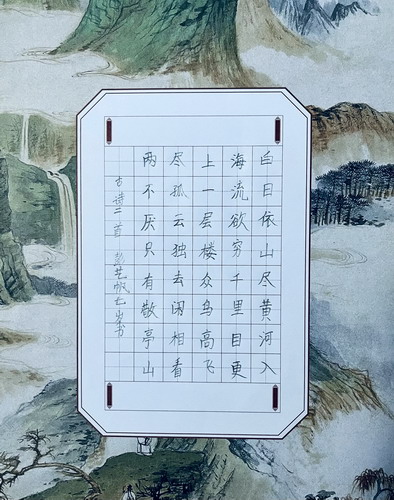 白日依山尽黄河入
海流欲穷千里目更
上一层楼众鸟高飞
尽孤云独去闲相看
两不厌只有敬亭山
古诗二首 彭艺帆七岁书